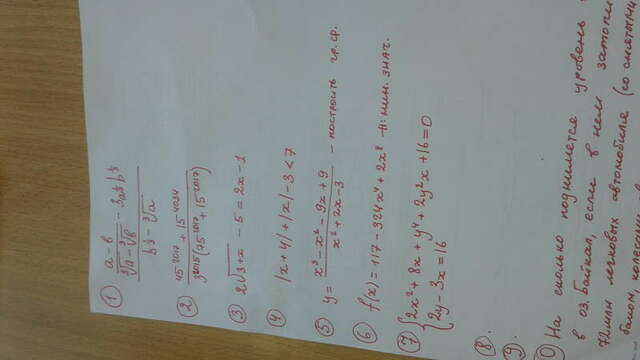 1 (a - b)/(∛a - ∛b) - 3a^⅓ b^⅓
b^⅓ - ∛a
2 45^2017 + 15^4034
3^2015 (75^2017 + 15^2017)
3 2√(3+x) - 5 = 2x - 1
4 |x + 4| + |x| - 3 < 7
5 y = (x³ - x² - 9x + 9)/(x² + 2x - 3) - построить гр. ф.
6 f(x) = 117 - 324x⁴ + 2x⁸ - н: мин. знач.
7 { 2x² + 8x + y⁴ + 2y²x + 16 = 0
2y - 3x = 16
8.
9.
0 На сколько поднимется уровень
в оз. Байкал, если в нем
72 млн легковых автомобиля (со
колесами